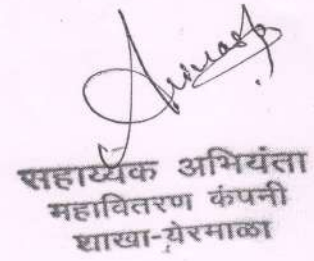 सहाय्यक अभियंता
महावितरण कंपनी
शाखा-येरमाळा